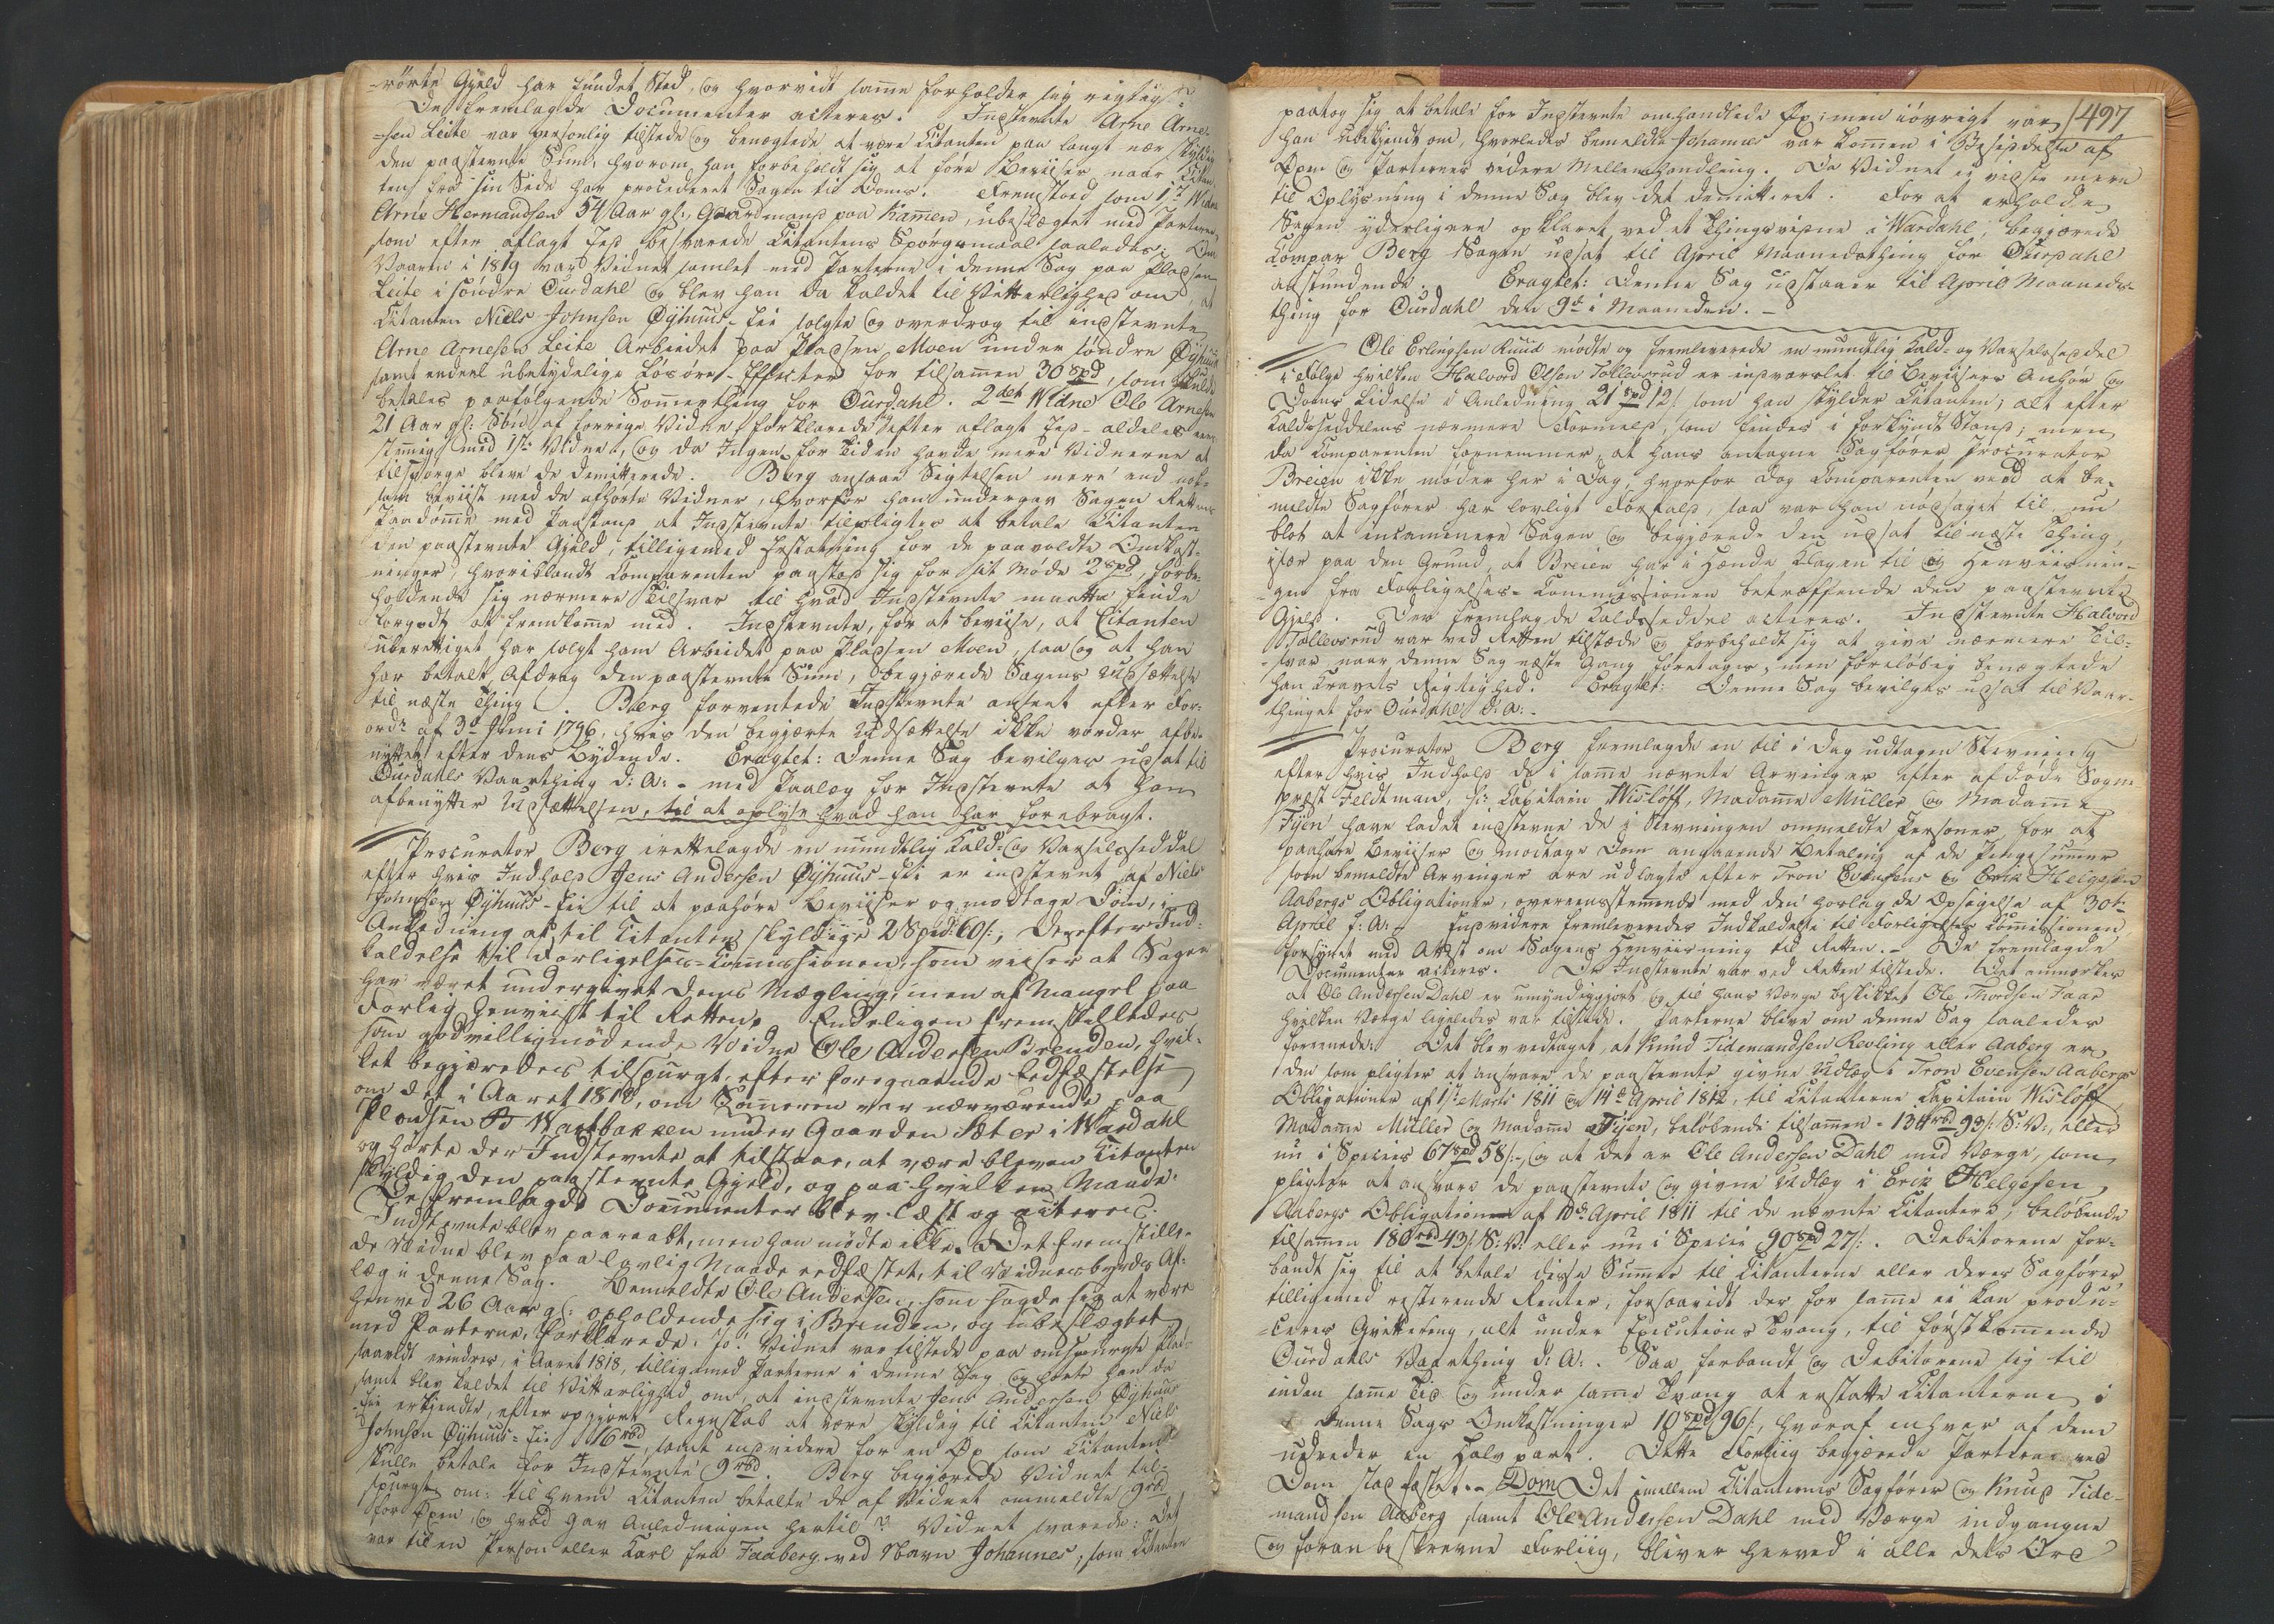 -rörte Gjeld har fundet Sted, og hvorvidt samme forholder sig rigtig?
De fremlagde Documenter acteres. Indstevnte Arne Arne-
-sen Leite var personlig tilstede og benegtede at være Citanten paa langt nær skyldig
den paastevnte Sum, hvorom han forbeholdt sig at före Beviiser naar Citan-
tens fra sin Side har procederet Sagen til Doms. Fremstoed som 1ste Vidne
Arne Hermandsen 54 Aar gl:, Gaardmand paa Kammen, ubeslægtet med Parterne,
som efter aflagt Eed besvarede Citantens Spörgsmaal saaledes: Om
Vaaren i 1819 var Vidnet samlet med Parterne i denne Sag paa Pladsen
Leite i söndre Ourdahl og blev han da kaldet til Vitterlighed om, at
Citanten Niels Johnsen Öyhuus-Eie solgte og overdrog til indstevnte
Arne Arnesen Leite Arbeidet paa Pladsen Moen under söndre Öyhuus
samt endeel ubetydelige Losöre-Effecter for tilsammen 30 Spd, som skulde
betales paafölgende Sommerthing for Ourdahl. 2det Vidne Ole Arnesen
21 Aar gl: Sön af forrige Vidne forklarede efter aflagt Eed - aldeles eens-
stemmig med 1ste Vidne, og da Ingen for Tiden havde mere Vidnerne at
tilspörge bleve de demitterede. Berg ansaae Sigtelsen mere end nok-
som beviist med de afhörte Vidner, hvorfor han undergav Sagen Rettens
Paadömme med Paastand at Indstevnte tilpligtes at betale Citanten
den paastevnte Gjeld, tilligemed Erstatning for de paavoldte Omkost-
ninger, hvoriblandt Comparenten paastod sig for sit Möde 2 Spd, forbe-
holdende sig nærmere Tilsvar til hvad Indstevnte maatte finde
forgodt at fremkomme med. Indstevnte, for at beviise, at Citanten
uberettiget har solgt ham Arbeidet paa Pladsen Moen, saa og at han
har betalt Afdrag den paastevnte Sum, begjærede Sagens Udsættelse
til næste Thing. Berg forventede Indstevnte anseet efter For-
ordn: af 3de Juni 1796, hvis den begjærte Udsættelse ikke vorder afbe-
nyttet efter dens Lydende. Eragtet: Denne Sag bevilges udsat til
Ourdahls Vaarthing d: A: - med Paalæg for Indstevnte at han
afbenytter Udsættelsen, til at oplyse hvad han har forebragt.
Procurator Berg irettelagde en mundtlig Kald- og Varselsseddel
efter hvis Indhold Jens Andersen Öyhuus-Eie er indstevnt af Niels
Johnsen Öyhuus-Eie til at paahöre Beviiser og modtage Dom, i
Anledning af til Citanten skyldige 28 Spd: 60 s:, derefter Ind-
kaldelse til Forligelses-Commissionen, som viiser at Sagen
har været undergivet dens Mægling, men af Mangel paa
Forlig henviist til Retten. Endeligen fremstilledes
som godvilligmödende Vidne Ole Andersen Brenden, hvil-
ket begjæredes tilspurgt, efter foregaaende Eedfæstelse
om det i Aaret 1818, om Sommeren var nærværende paa
Pladsen Wartbakken under Gaarden Sæter i Wardahl
og hörte der Indstevnte at tilstaae, at være bleven Citanten
skyldig den paastevnte Gjeld, og paa hvilken Maade.
De fremlagde Documenter blev læst og acteres.
Indstevnte blev paaraabt, men han mödte ikke. Det fremstille-
de Vidne blev paa lovlig Maade eedfæstet, til Vidnesbyrds Af-
læg i denne Sag. Bemeldte Ole Andersen, som sagde sig at være
henved 26 Aar gl: opholdende sig i Brenden, og ubeslægtet
med Parterne, forklarede: Jo! Vidnet var tilstede paa omspurgte Plads
saavidt erindres, i Aaret 1818, tilligemed Parterne i denne Sag og hörte han da
samt blev kaldet til Vitterlighed om, at indstevnte Jens Andersen Öyhuus-
Eie erkjendte, efter opgjort Regnskab at være skyldig til Citanten Niels
Johnsen Öyhuus-Eie 16 rbd, samt endvidere for en Öx som Citanten
skulle betale for Indstevnte 9 rbd. Berg begjærede Vidnet til-
spurgt om: til hvem Citanten betalte de af Vidnet ommeldte 9 rbd
for Öxen, og hvad gav Anledningen hertil? Vidnet svarede: Det
var til en Person eller Karl fra Faaberg ved Navn Johannes, som Citanten
497
paatog sig at betale for Indstevnte omhandlede Öx; men iövrigt var
han ubekjendt om, hvorledes bemeldte Johannes var kommen i Besiddelse af
Öxen og Parternes videre Mellemhandling. Da Vidnet ei vidste mere
til Oplysning i denne Sag blev det demitteret. For at erholde
Sagen yderligere opklaret ved et Thingsvidne i Wardahl, begjærede
Compar: Berg Sagen udsat til April Maanedsthing for Ourdahl
anstundende. Eragtet: Denne Sag udstaaer til April Maaneds-
thing for Ourdahl den 9de i Maaneden. -
Ole Erlingsen Ruud mödte og fremleverede en mundtlig Kald- og Varselsseddel
i Fölge hvilken Halvord Olsen Tollevsrud er indvarslet til Beviisers Anhör og
Doms Lidelse i Anledning 21 Spd 12 s: som han skylder Citanten, alt efter
Kaldseddelens nærmere Formeld, som findes i forkyndt Stand; men
da Comparenten fornemmer, at hans antagne Sagförer Procurator
Breien ikke möder her i Dag, hvorfor dog Comparenten veed at be-
meldte Sagförer har lovligt Forfald, saa var han nödsaget til nu
blot at incaminere Sagen og begjærede den udsat til næste Thing,
især paa den Grund, at Breien har i Hænde Klagen til og Henviisnin-
-gen fra Forligelses-Commissionen betræffende den paastevnte
Gjeld. Den fremlagde Kaldsseddel acteres. Indstevnte Halvord
Tollevsrud var ved Retten tilstæde og forbeholdt sig at give nærmere Til-
-svar naar denne Sag næste Gang foretages, men forelöbig benægtede
han Kravets Rigtighed. Eragtet: Denne Sag bevilges udsat til Vaar-
thinget for Ourdahl d: A: -
Procurator Berg fremlagde en til i Dag udtagen Stevning
efter hvis Indhold de i samme nævnte Arvinger efter afdöde Sogne-
præst Feldtman, hr: Capitain Wislöff, Madamme Müller og Madamme
Tyen have ladet indstevne de i Stevningen ommeldte Personer, for at
paahöre Beviiser og modtage Dom angaaende Betaling af de Pengesummer
som bemeldte Arvinger ere udlagte efter Tron Evensens og Erik Helgesen
Aabergs Obligationer, overeensstemmende med den forlagde Opsigelse af 30te
April f: A: - Endvidere fremleveredes Indkaldelse til Forligelses Commissionen,
forsynet med Attest om Sagens Henviisning til Retten. - De fremlagde
Documenter acteres. De Indstevnte var ved Retten tilstede. Det anmærkes
at Ole Andersen Dahl er umyndiggjort og til hans Værge beskikket Ole Thordsen Faae
hvilken Værge ligeledes var tilstede. Parterne bleve om denne Sag saaledes
forenede: Det blev vedtaget, at Knud Tidemandsen Revling eller Aaberg er
den som pligter at ansvare de paastevnte givne Udlæg i Tron Evensen Aabergs
Obligationer af 1ste Marts 1811 og 14de April 1812, til Citanterne Capitain Wislöff,
Madamme Müller og Madamme Tyen, belöbende tilsammen - 134 rbd 93 s: S: V:, eller
nu i Species 67 Spd 58 s: -, og at det er Ole Andersen Dahl med Værge, som
pligter at ansvare de paastevnte og givne Udlæg i Erik Helgesen
Aabergs Obligation af 10de April 1811 til de nævnte Citantere, belöbende
tilsammen 180 rbd 43 s: S: V: eller nu i Specie 90 Spd 27 s:. Debitorerne for-
bandt sig til at betale disse Summer til Citanterne eller deres Sagförer,
tilligemed resterende Renter, forsaavidt der for samme ei kan produ-
ceres Qvittering, alt under Executions Tvang, til förstkommende
Ourdahls Vaarthing d: A:. Saa forbandt og Debitorerne sig til
inden samme Tid og under samme Tvang at erstatte Citanterne i
denne Sags Omkostninger 10 Spd 96 s:, hvoraf enhver af dem
udreder en Halv part. Dette Forliig begjærede Parterne ved
Dom stadfæstet. - Dom Det imellem Citanternes Sagförer og Knud Tide-
mandsen Aaberg samt Ole Andersen Dahl med Værge indgangne
og foran beskrevne Forliig, bliver herved i alle dets Ord